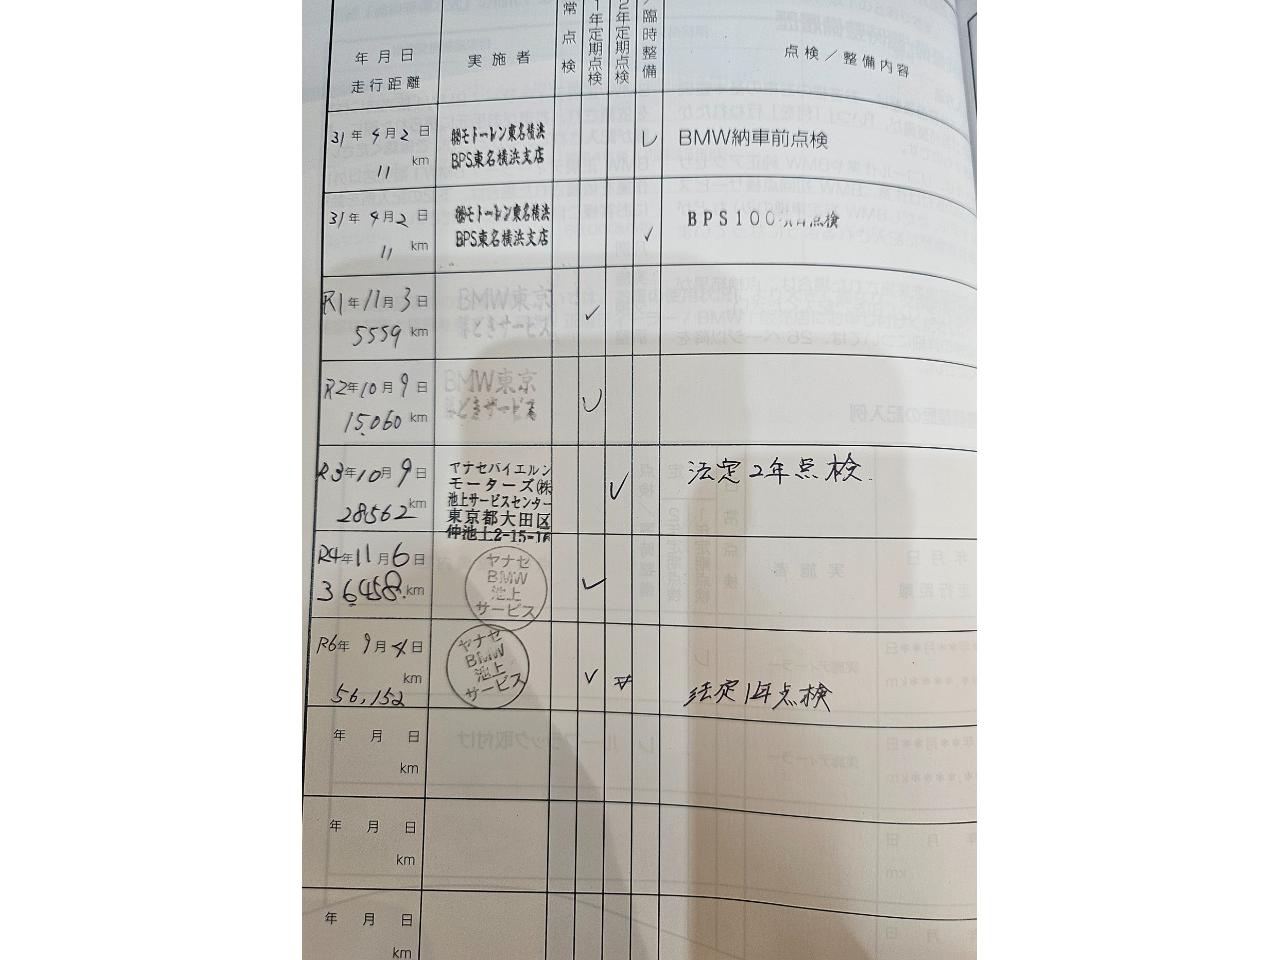 年月日
走行距離
実施者
常点検
1年定期点検
2年定期点検
臨時整備
点検／整備内容
31年 4月2日
11 km
㈱モトーレン東名横浜
BPS東名横浜支店
レ
BMW納車前点検
31年 4月2日
11 km
㈱モトーレン東名横浜
BPS東名横浜支店
✓
BPS100項目点検
R1年11月3日
5559 km
BMW東京
サービス
✓
R2年10月9日
15,060 km
BMW東京
サービス
✓
R3年10月9日
28562 km
ヤナセバイエルン
モーターズ㈱
池上サービスセンター
東京都大田区
仲池上2-15-1
✓
法定2年点検.
R4年11月6日
36458 km
ヤナセ
BMW
池上
サービス
✓
R6年 9月4日
56,152 km
ヤナセ
BMW
池上
サービス
✓
法定1年点検
年 月 日
km
年 月 日
km
年 月 日
km